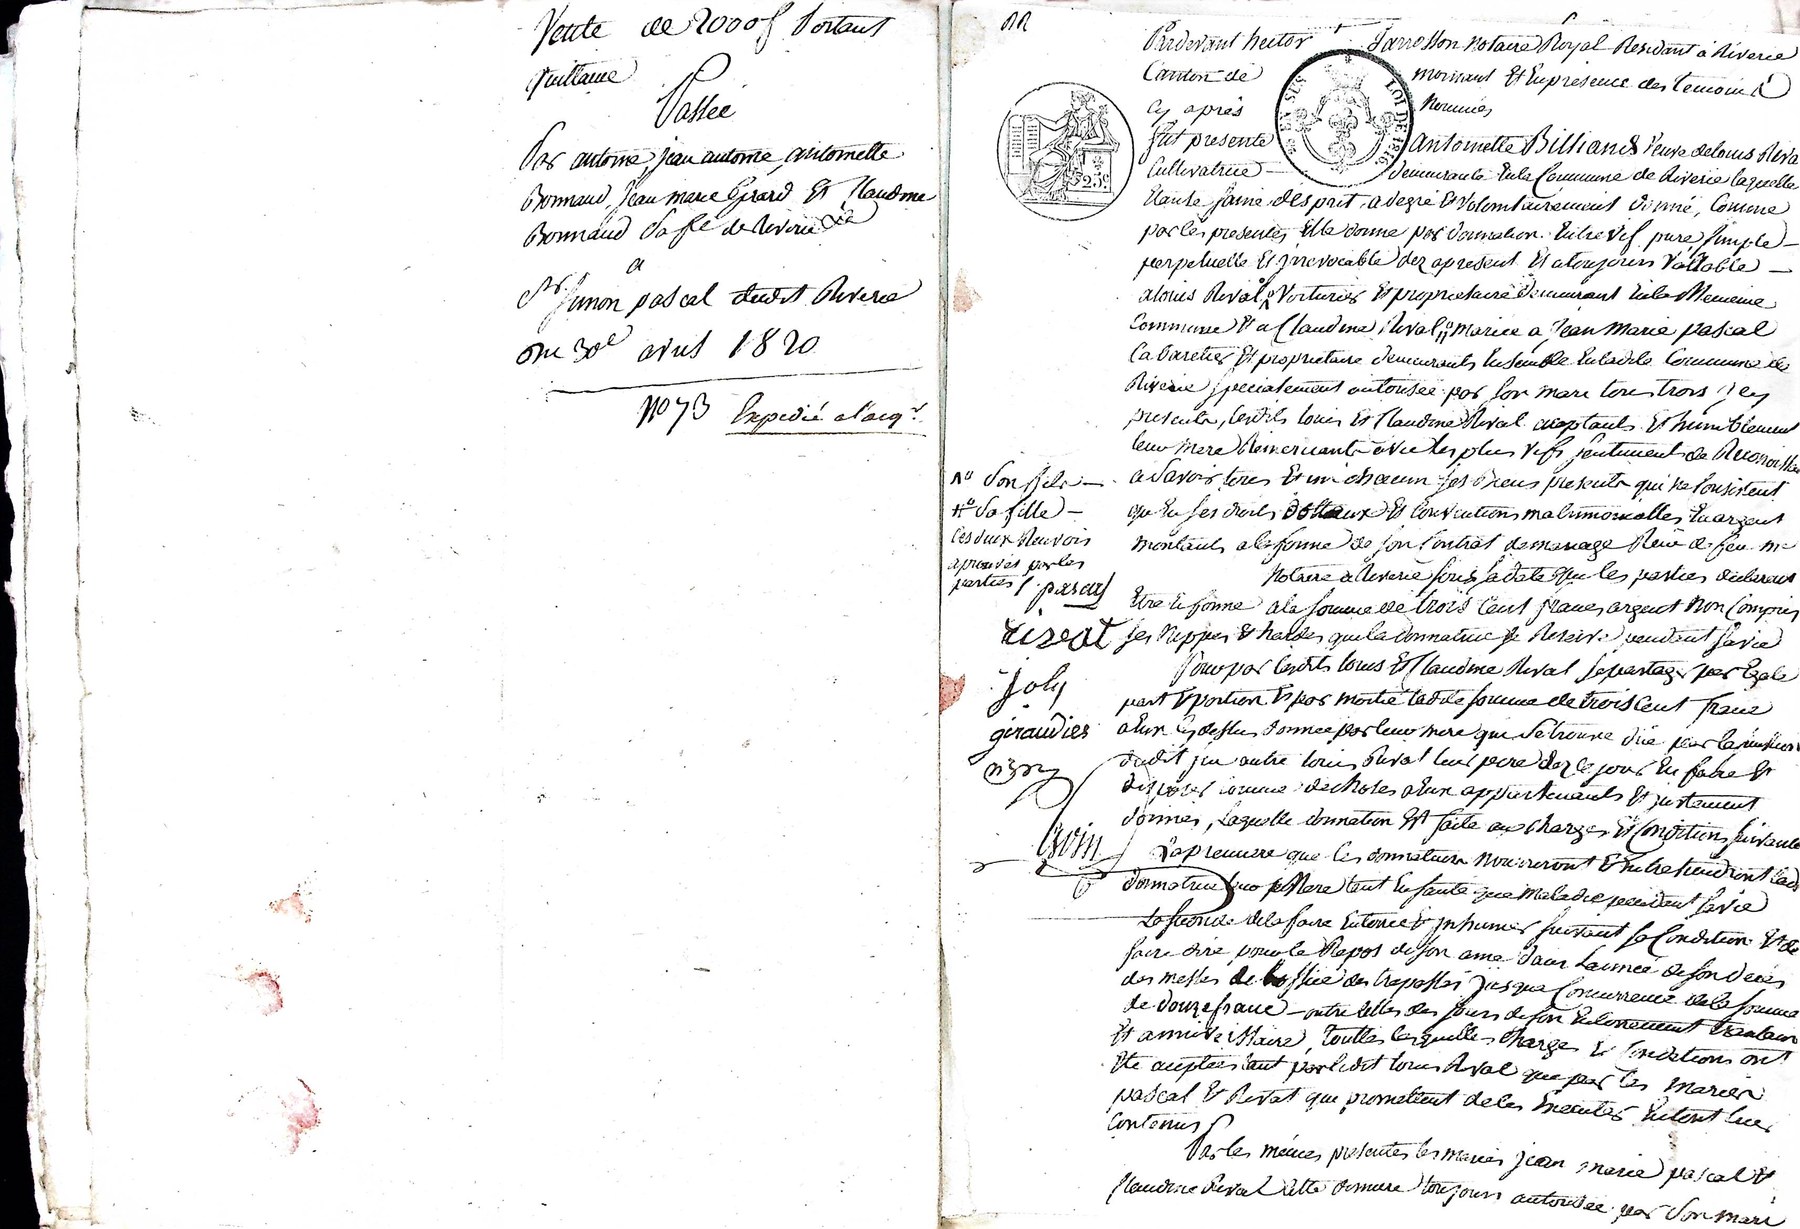 Vente de 2000f portant
quittance
Passée
Par antoine, jean antoine, antoinette
Bonnand, Jean marie Girard Et Claudine
Bonnand sa fe de Riverie
a
Sr Simon pascal dudit Riverie
Du 30e avril 1820
No 73 Expedié a l'acqr
Pardevant hector Jarrosson notaire Royal Residant à Riverie
Canton de mornant Et En presence des temoins
cy après Nommés
fut presente Antoinette Billiand Veuve de Louis Rival
Cultivatrice demeurante En la Commune de Riverie laquelle
Etante saine d'esprit, a degré Et Volontairement donné, Comme
par les presentes Elle donne par donnation Entre Vif pure, simple
perpetuelle Et irrevocable dez apresent Et atoujours Vallable
a louis Rival Voiturier Et proprietaire demeurant En la Mememe
Commune Et a Claudine Rival mariée a Jean Marie pascal
Cabaretier Et proprietaire demeurants Ensemble En ladite Commune de
Riverie specialement autorisée par son mari tous trois icy
presents, lesdits louis Et Claudine Rival acceptants Et humblement
leur mere Remerciants avec les plus Vifs sentiments de Reconnoissance
a Savoir tous Et un chacun ses Biens presents qui ne Consistent
qu'En ses droits dottaux Et Conventions matrimonialles En argent
montants a la forme de son Contrat de mariage Reçu de feu me
Notaire a Riverie sous sa date que les parties declarent
Etre En somme a la somme de trois Cent francs argent Non Compris
ses Nippes Et hardes que la donnatrice se Reserve pendant sa vie
Pour par lesdits louis Et Claudine Rival se partager par Egale
part Et portion Et par moitié ladite somme de trois Cent franc
a Eux cy dessus donnée par leur mere qui Se trouve düe par la
dudit feu autre louis Rival leur pere dez ce jour En faire Et
disposer comme de choses a Eux appartenants Et justement
données, Laquelle donnation Est faite aux charges Et Conditions suivantes
La premiere que les donnataires nourriront Et Entretiendront
donnatrice leur Mere tant En santé que maladie pendant sa vie
La seconde de la faire Enterrer Et inhumer suivant sa Condition Et de
faire dire pour le Repos de son ame dans L'année de son Decés
des messes de l'office des trepassés jusqua Concurrence de la somme
de douze franc outre Celles des jours de son Enterrement
Et anniverssaire, touttes lesquelles Charges Et Conditions ont
Eté acceptées tant par ledit louis Rival que par les mariés
pascal Et Rival qui promettent de les Executer En tout leur
Contenus
Par les mêmes presentes les mariés jean marie pascal Et
Claudine Rival Cette derniere toujours autorisée par Son mari
No Son fils
No Sa fille
Ces deux Renvois
aprouvés par les
parties
pascal
rizeat
joly
giraudier
LOI DE 1816
25c